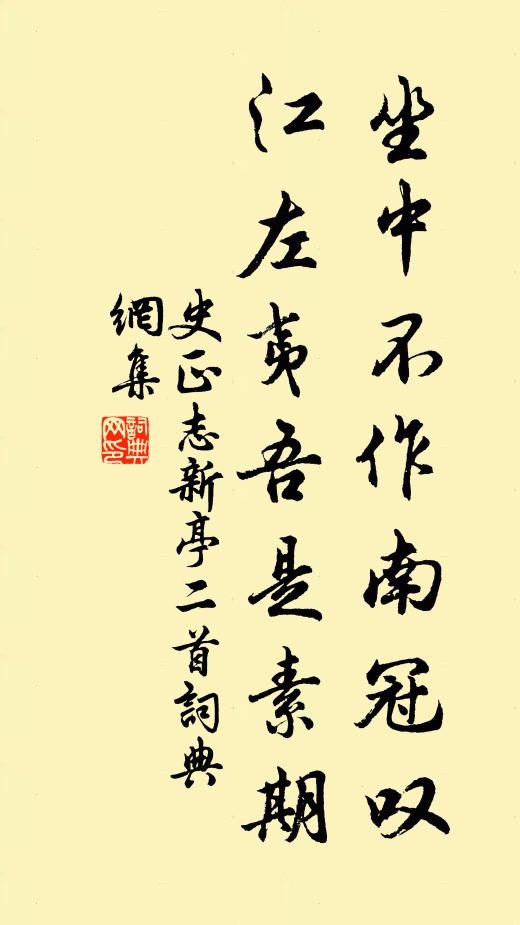 坐中不作南冠叹
江左夷吾是素期
史正志新亭二首詞典
網集
詞典
网印